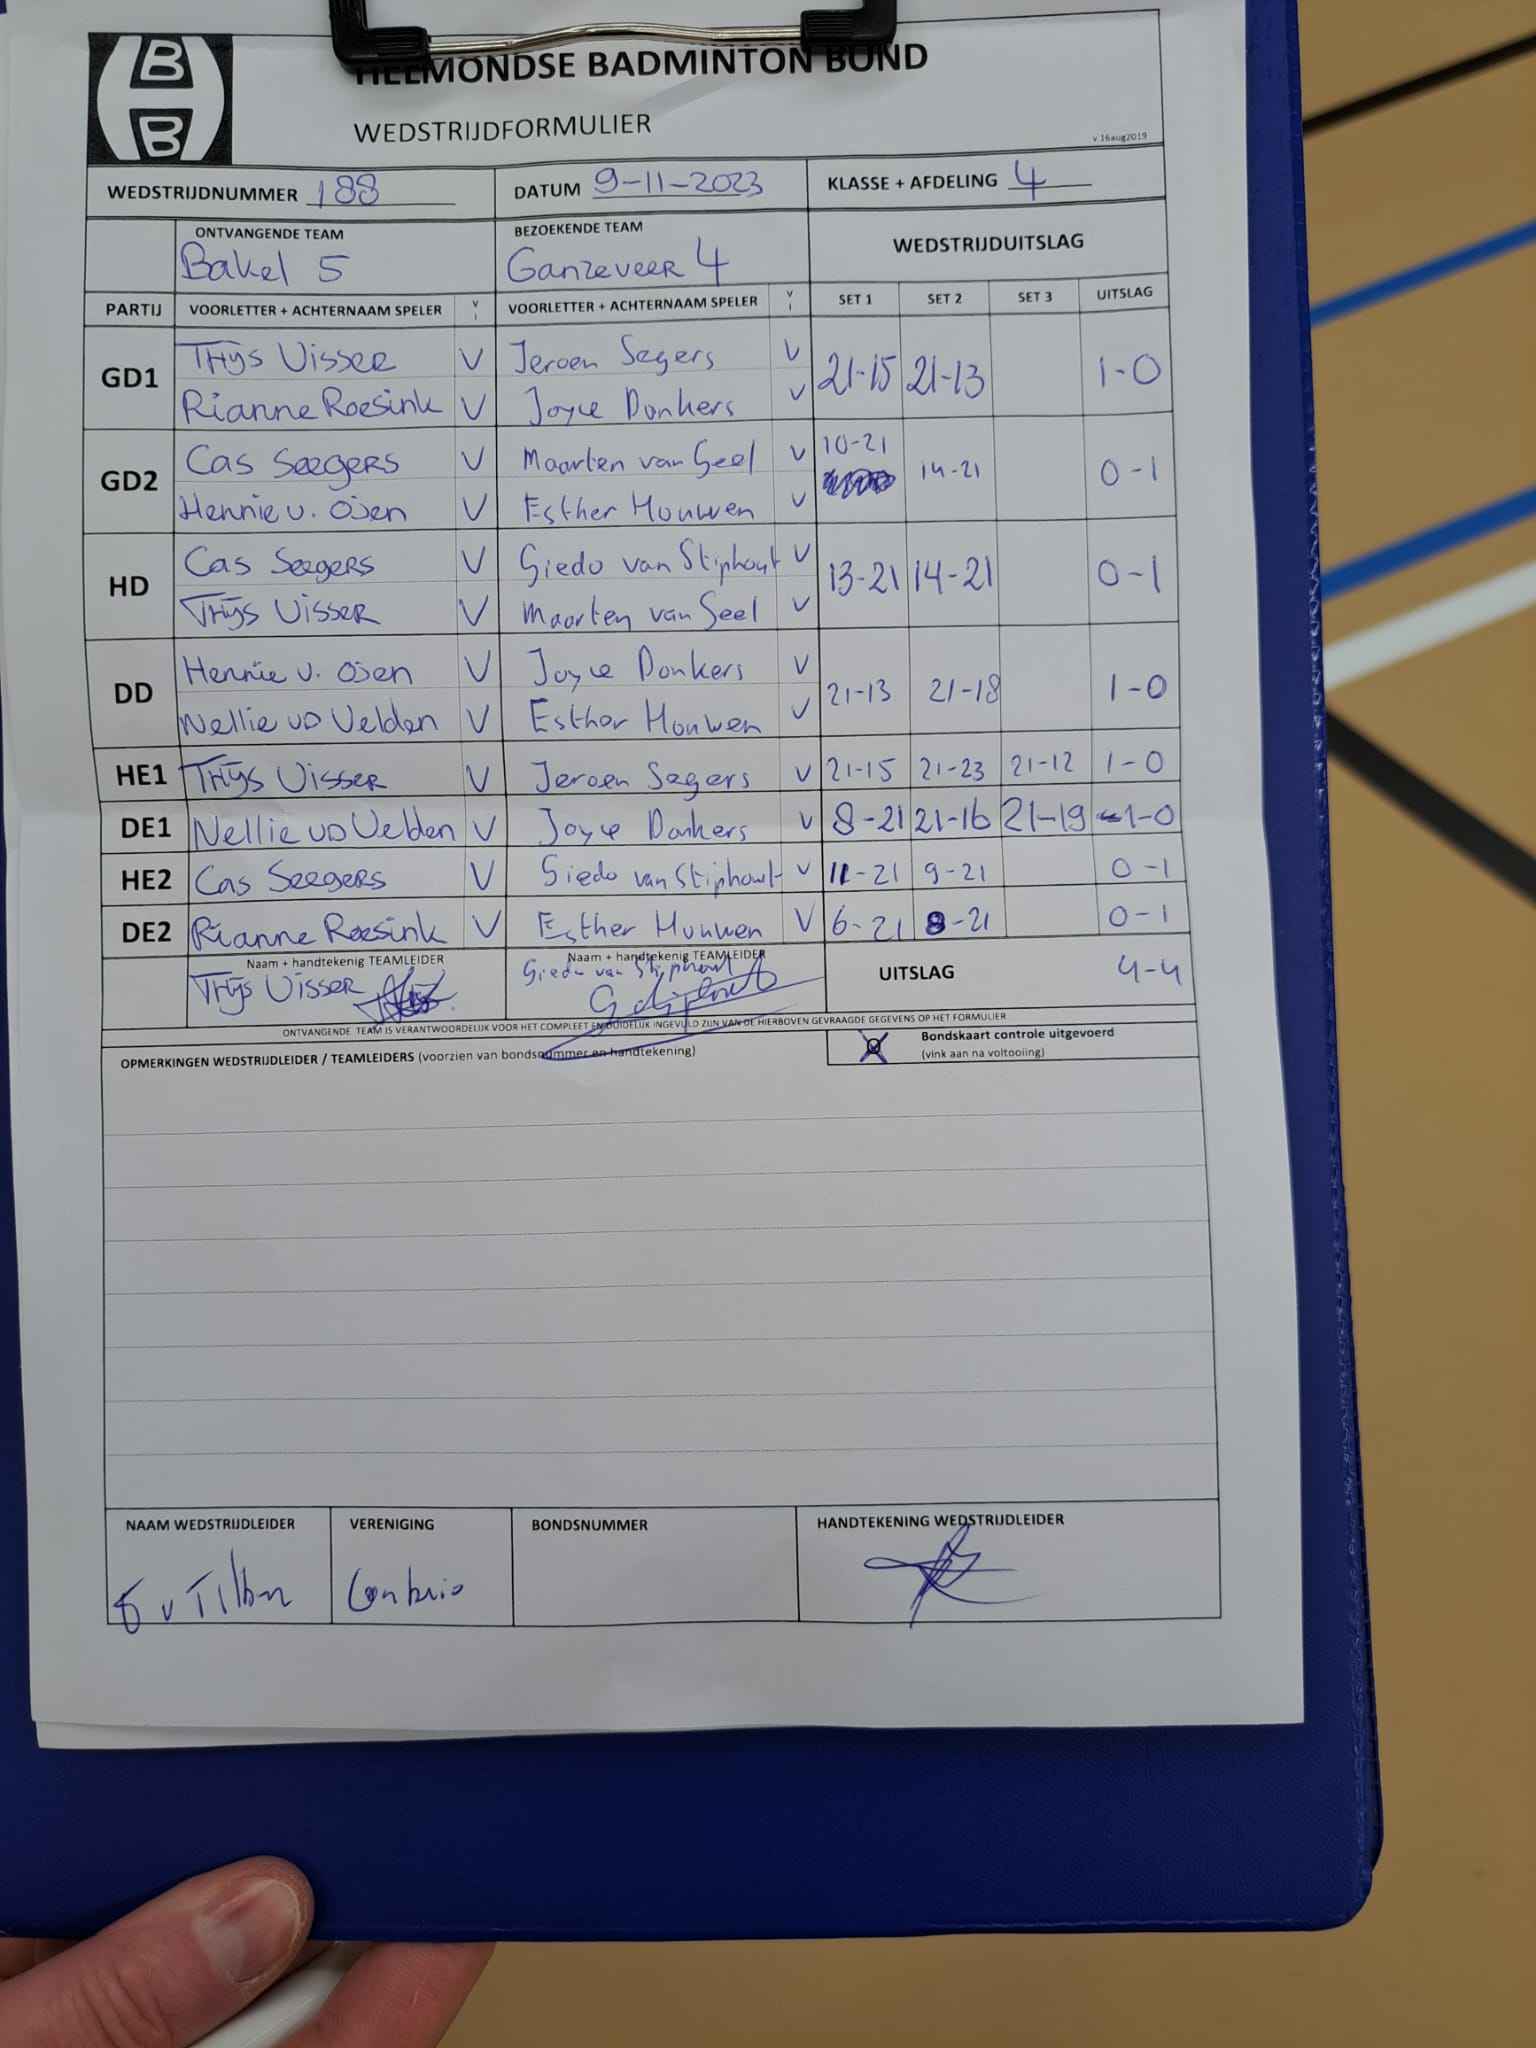 HELMONDSE BADMINTON BOND
WEDSTRIJDFORMULIER
v.16aug2019
WEDSTRIJDNUMMER 188 DATUM 9-11-2023 KLASSE + AFDELING 4
ONTVANGENDE TEAM BEZOEKENDE TEAM WEDSTRIJDUITSLAG
Bakel 5 Ganzeveer 4
PARTIJ VOORLETTER + ACHTERNAAM SPELER V I VOORLETTER + ACHTERNAAM SPELER V I SET 1 SET 2 SET 3 UITSLAG
GD1 Thijs Visser V Jeroen Segers V 21-15 21-13 1-0
Rianne Roesink V Joyce Donkers V
GD2 Cas Seegers V Maarten van Geel V 10-21 14-21 0-1
Hennie v. Osen V Esther Mouwen V
HD Cas Seegers V Giedo van Stiphout V 13-21 14-21 0-1
Thijs Visser V Maarten van Geel V
DD Hennie v. Osen V Joyce Donkers V 21-13 21-18 1-0
Nellie vD Velden V Esther Mouwen V
HE1 Thijs Visser V Jeroen Segers V 21-15 21-23 21-12 1-0
DE1 Nellie vD Velden V Joyce Donkers V 8-21 21-16 21-19 1-0
HE2 Cas Seegers V Giedo van Stiphout V 11-21 9-21 0-1
DE2 Rianne Roesink V Esther Mouwen V 6-21 8-21 0-1
Naam + handtekenig TEAMLEIDER Naam + handtekenig TEAMLEIDER
Thijs Visser Giedo van Stiphout UITSLAG 4-4
ONTVANGENDE TEAM IS VERANTWOORDELIJK VOOR HET COMPLEET EN DUIDELIJK INGEVULD ZIJN VAN DE HIERBOVEN GEVRAAGDE GEGEVENS OP HET FORMULIER
OPMERKINGEN WEDSTRIJDLEIDER / TEAMLEIDERS (voorzien van bondsnummer en handtekening) Bondskaart controle uitgevoerd
(vink aan na voltooiing)
NAAM WEDSTRIJDLEIDER VERENIGING BONDSNUMMER HANDTEKENING WEDSTRIJDLEIDER
v Conbrio